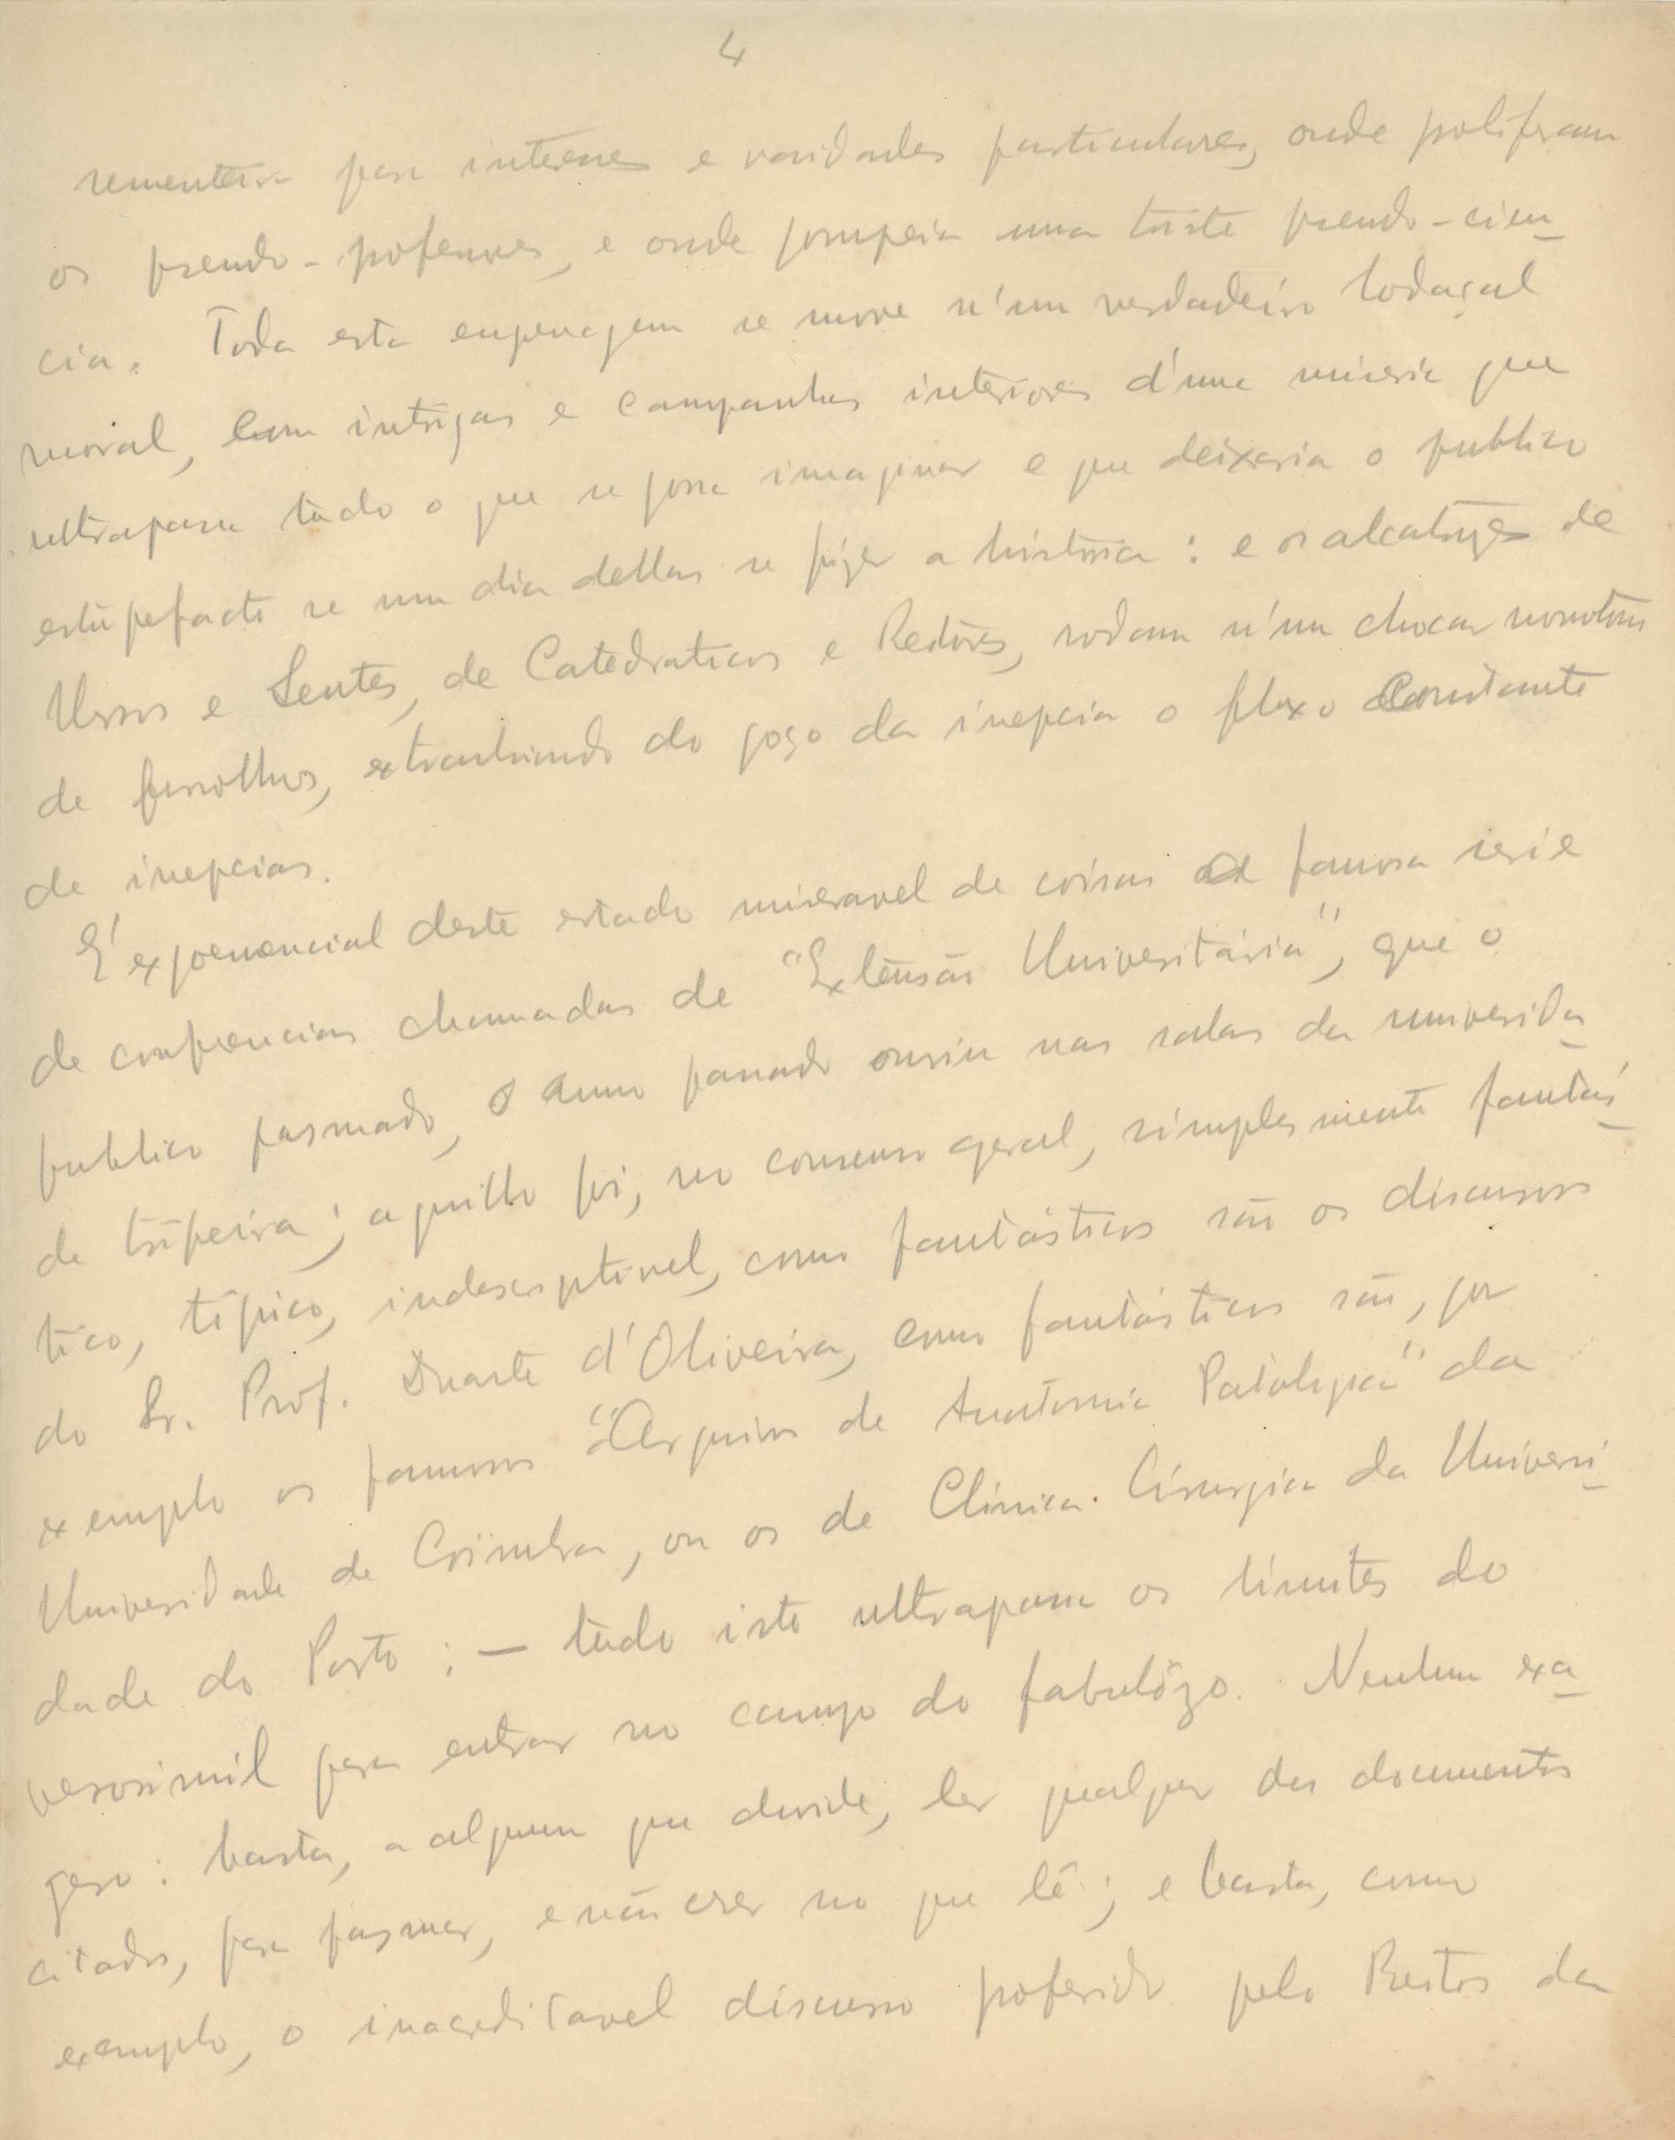 4
sementeira para interesses e vaidades particulares, onde proliferam
os pseudo-professores, e onde pompeia uma triste pseudo-cien-
cia. Toda esta engrenagem se move n'um verdadeiro lodaçal
moral, com intrigas e campanhas interiores d'uma miseria que
ultrapassa tudo o que se possa imaginar e que deixaria o publico
estupefacto se um dia dellas se fizer a história: e os alcatruzes de
Ursos e Lentes, de Catedraticos e Reitores, rodam n'um chocar monotono
de ferrolhos, extrahindo do poço da inepcia o fluxo constante
de inepcias.
É exponencial deste estado miseravel de coisas a famosa serie
de conferencias chamadas de "Extensão Universitária", que o
publico pasmado, o anno passado ouviu nas salas da universida-
de tripeira; aquillo foi, no consenso geral, simplesmente fantás-
tico, típico, indescriptivel, como fantásticos são os discursos
do Sr. Prof. Duarte d'Oliveira, como fantásticos são, por
exemplo os famosos "Arquivos de Anatomia Patologica" da
Universidade de Coimbra, ou os de Clinica Cirurgica da Universi-
dade do Porto: — tudo isto ultrapassa os limites do
verosimil para entrar no campo do fabulôzo. Nenhum exa-
gero: basta, a alguem que duvide, ler qualquer dos documentos
citados, para pasmar, e não crer no que lê; e basta, como
exemplo, o inacreditavel discurso proferido pelo Reitor da